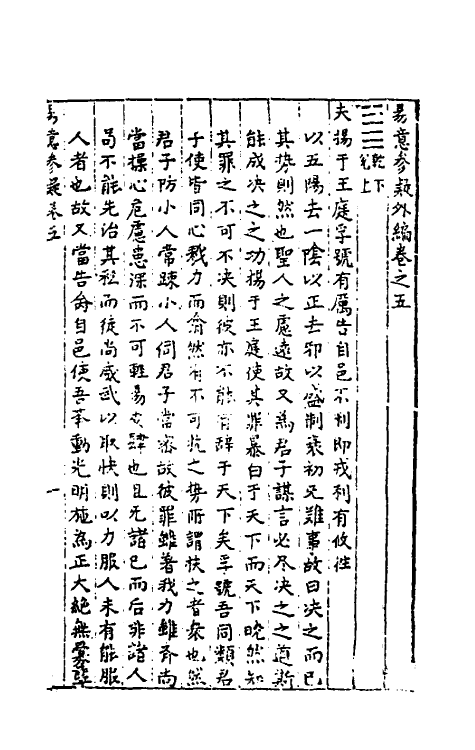 易意參疑外編卷之五
䷪乾下兌上
夬揚于王庭孚號有厲告自邑不利即戎利有攸往
以五陽去一陰以正去邪以盛制衰初无難事故曰決之而已
其勢則然也聖人之慮遠故又為君子謀言必尽決之之道斯
能成決之之功揚于王庭使其罪暴白于天下而天下曉然知
其罪之不可不決則彼亦不能有辞于天下矣孚號吾同類君
子使皆同心戮力而翕然有不可抗之勢所謂扶之者衆也然
君子防小人常踈小人伺君子常密故彼罪雖著我力雖齐尚
當操心危慮患深而不可輕易安肆也且无諸己而后非諸人
苟不能先治其私而徒尚威武以取快則以力服人未有能服
人者也故又當告命自邑使吾举動光明施為正大絶無釁隙
易意参疑卷五
一